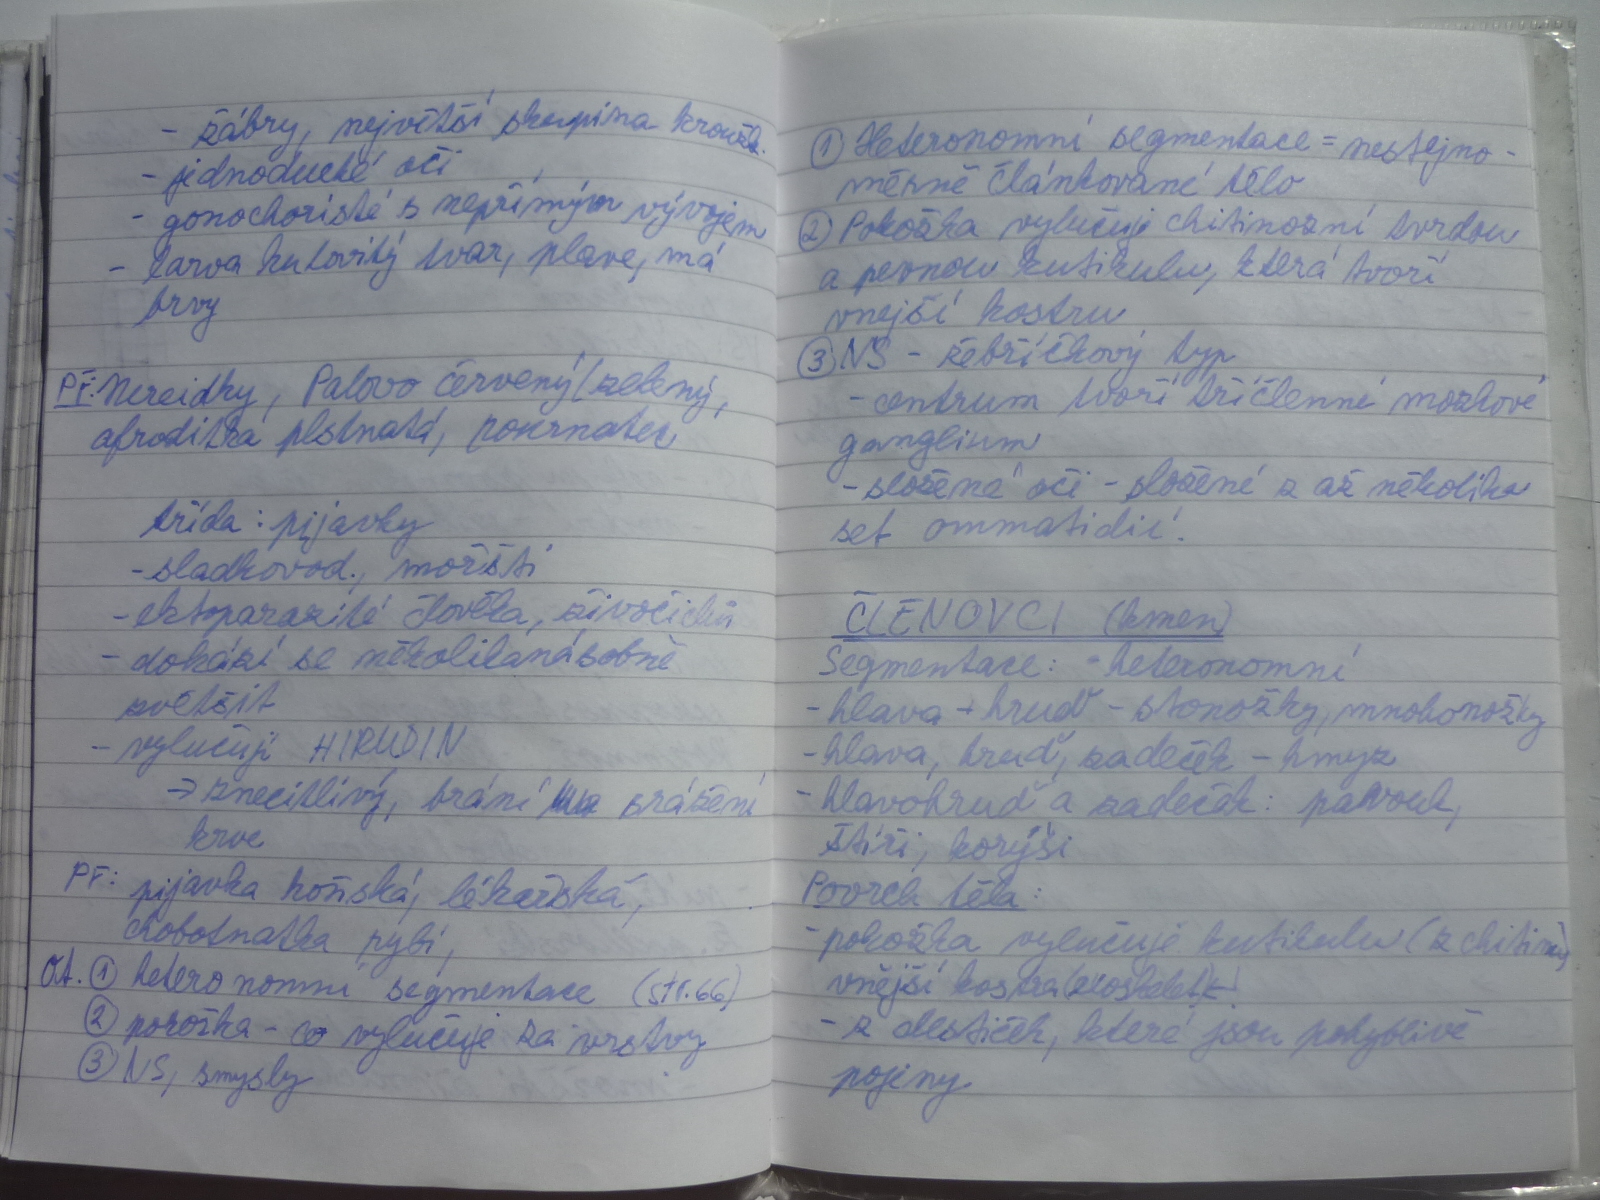 - žábry, největší skupina kroužk.
- jednoduché oči
- gonochoristé s nepřímým vývojem
- larva kulovitý tvar, plave, má
brvy
Př: Nereidky, Palovo červený/zelený,
afroditka plstnatá,
třída: pijavky
- sladkovod., mořští
- ektoparazité člověka, živočichů
- dokází se několikanásobně
zvětšit
- vylučují HIRUDIN
→ znecitlivý, brání srážení
krve
PŘ: pijavka koňská, lékařská,
chobotnatka rybí,
Ot. ① heteronomní segmentace (str. 66)
② pokožka - co vylučuje za vrstvy
③ NS, smysly
① Heteronomní segmentace = nestejno-
měrně článkované tělo
② Pokožka vylučuje chitinozní tvrdou
a pevnou kutikulu, která tvoří
vnejší kostru
③ NS - žebříčkový typ
- centrum tvoří tříčlenné mozkové
ganglium
- složené oči - složené z až několika
set ommatidií.
ČLENOVCI (kmen)
Segmentace: - heteronomní
- hlava + hruď - stonožky, mnohonožky
- hlava, hruď, zadeček - hmyz
- hlavohruď a zadeček: pavouk,
štíři, korýši
Povrch těla:
- pokožka vylučuje kutikulu (z chitinu)
vnější kostra
- z destiček, které jsou pohyblivě
pojeny